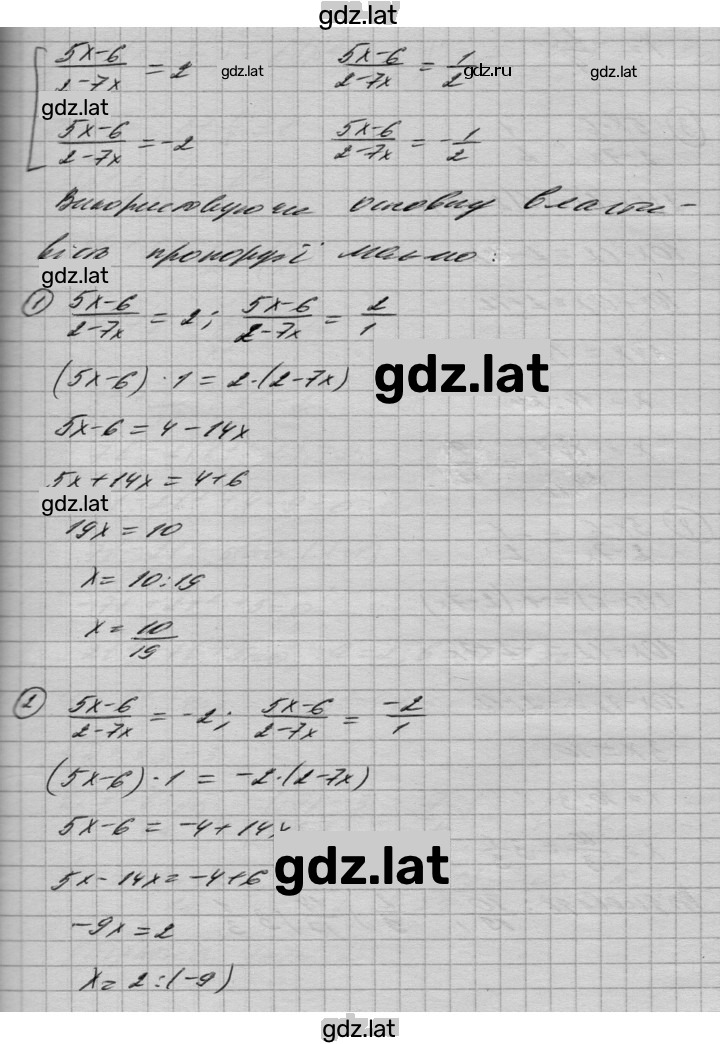 gdz.lat
(5x-6)/(2-7x) = 2 gdz.lat (5x-6)/(2-7x) = 1/2 gdz.ru gdz.lat
gdz.lat
(5x-6)/(2-7x) = -2 (5x-6)/(2-7x) = -1/2
Використовуючи основну власти-
вість пропорції маємо:
gdz.lat
1 (5x-6)/(2-7x) = 2; (5x-6)/(2-7x) = 2/1
(5x-6)·1 = 2·(2-7x) gdz.lat
5x-6 = 4-14x
5x+14x = 4+6
gdz.lat
19x = 10
x = 10:19
x = 10/19
2 (5x-6)/(2-7x) = -2; (5x-6)/(2-7x) = -2/1
(5x-6)·1 = -2·(2-7x)
5x-6 = -4+14x
5x-14x = -4+6 gdz.lat
-9x = 2
x = 2:(-9)
gdz.lat